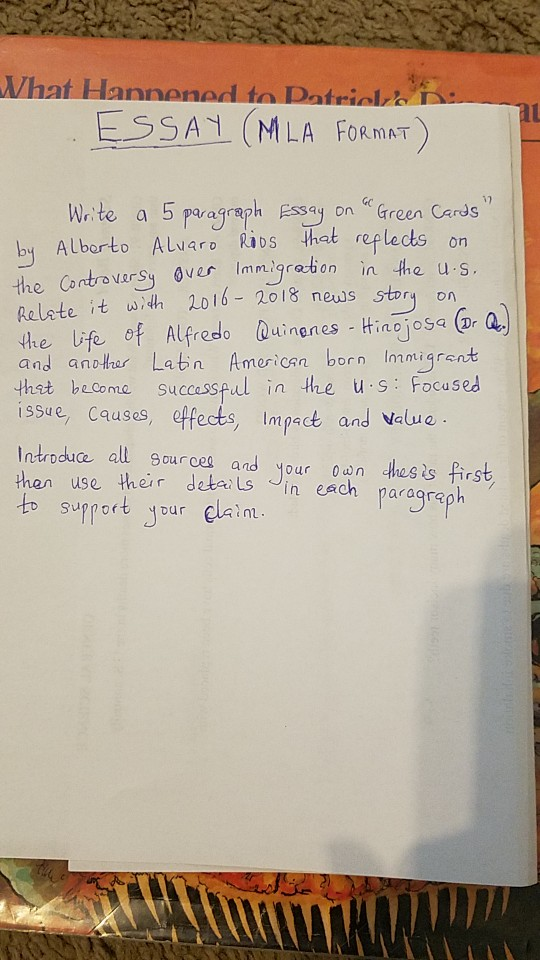 What Happened to Patrick's
ESSAY (MLA FORMAT)
Write a 5 paragraph Essay on "Green Cards"
by Alberto Alvaro Rios that reflects on
the Controversy over Immigration in the U.S.
Relate it with 2016-2018 news story on
the life of Alfredo Quinones-Hinojosa (Dr Q.)
and another Latin American born Immigrant
that become successful in the U.S: Focused
issue, Causes, effects, Impact and Value.
Introduce all sources and your own thesis first,
then use their details in each paragraph
to support your Claim.